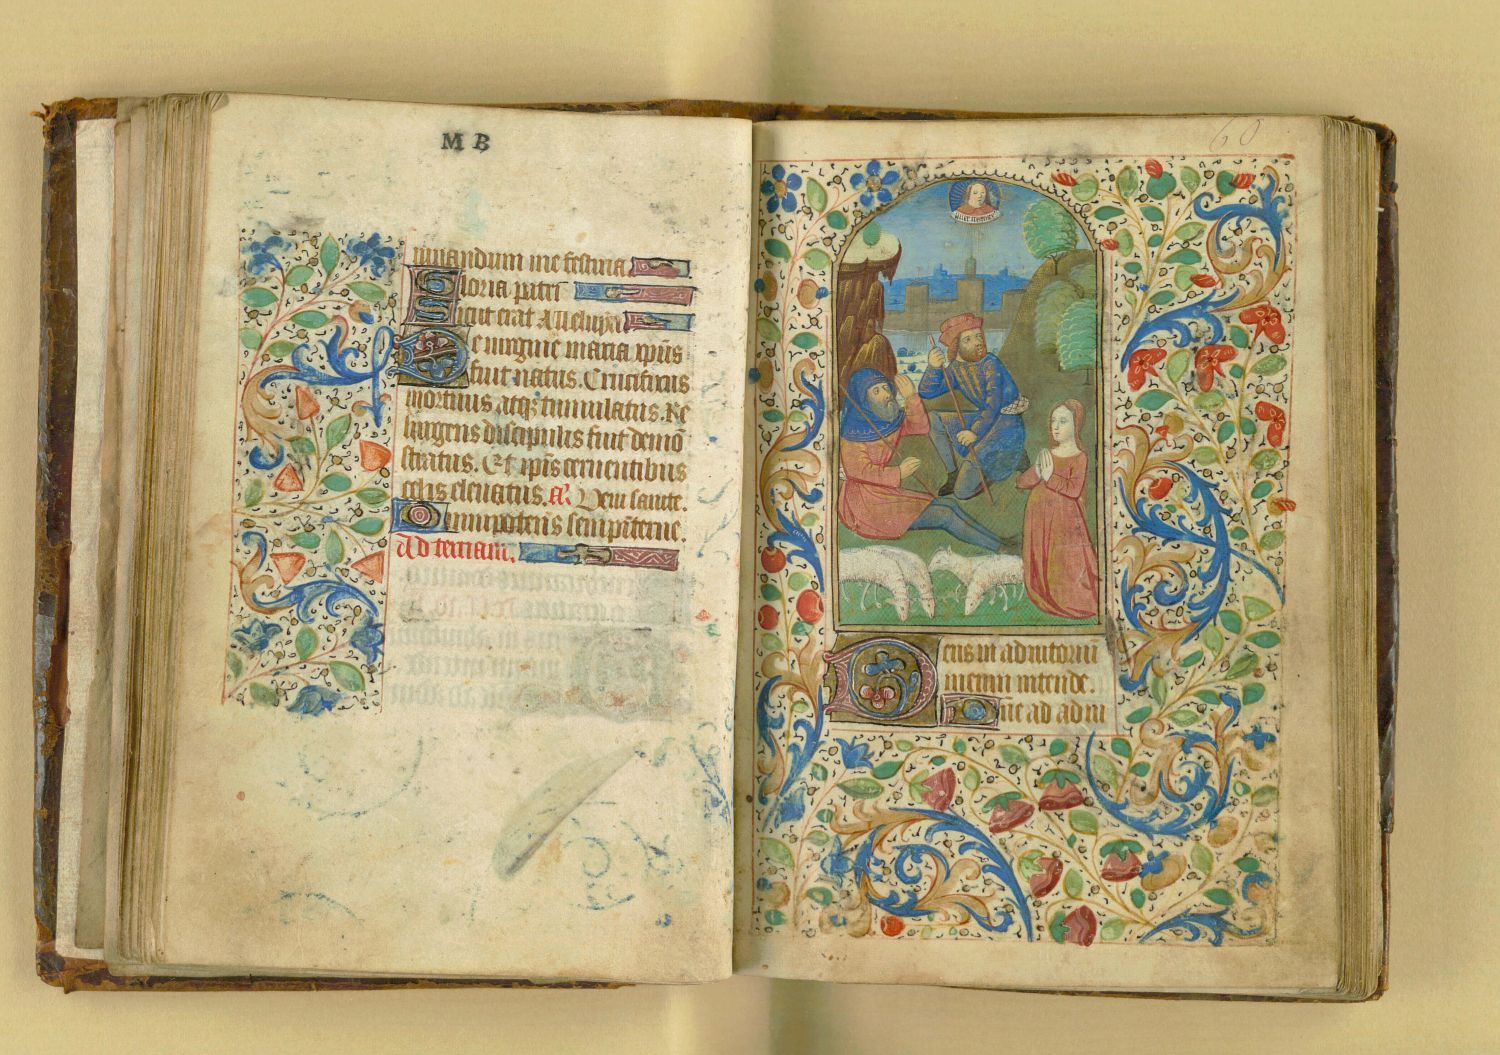 M B
iuuandum me festina
Gloria patri
Sicut erat Alleluya
De uirgine maria xp̄us
fuit natus. Crucifixus
mortuus atq; tumulatus. Re
surgens discipulis fuit demō
stratus. Et ip̄is cernentibus
celis eleuatus. añ. Veni sancte.
Omnipotens sempit̄erne.
Ad terciam.
60
Deus in adiutoriū
meum intende.
Dn̄e ad adiu